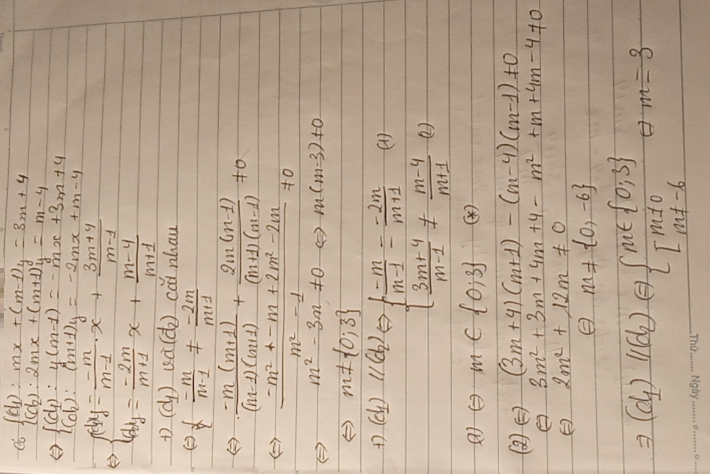 a) {(d₁): mx + (m-1)y = 3m + 4
{(d₂): 2mx + (m+1)y = m - 4
⇔ {(d₁): y(m-1) = -mx + 3m + 4
{(d₂): (m+1)y = -2mx + m - 4
⇔ {(d₁)y = -m/(m-1) . x + (3m+4)/(m-1)
{(d₂)y = -2m/(m+1) x + (m-4)/(m+1)
+) (d₁) và (d₂) cắt nhau
⇔ { -m/(m-1) ≠ -2m/(m+1)
⇔ -m(m+1)/((m-1)(m+1)) + 2m(m-1)/((m+1)(m-1)) ≠ 0
⇔ (-m² + -m + 2m² - 2m)/(m² - 1) ≠ 0
⇔ m² - 3m ≠ 0 ⇔ m(m-3) ≠ 0
⇔ m ≠ {0;3}
+) (d₁) // (d₂) ⇔ { -m/(m-1) = -2m/(m+1) (1)
{ (3m+4)/(m-1) ≠ (m-4)/(m+1) (2)
(1) ⇔ m ∈ {0;3} (*)
(2) ⇔ (3m+4)(m+1) - (m-4)(m-1) ≠ 0
⇔ 3m² + 3m + 4m + 4 - m² + m + 4m - 4 ≠ 0
⇔ 2m² + 12m ≠ 0
⇔ m ≠ {0, -6}
⇒ (d₁) // (d₂) ⇔ { m ∈ {0;3}
{ [ m ≠ 0
m ≠ -6 ⇔ m = 3
Thứ........ Ngày